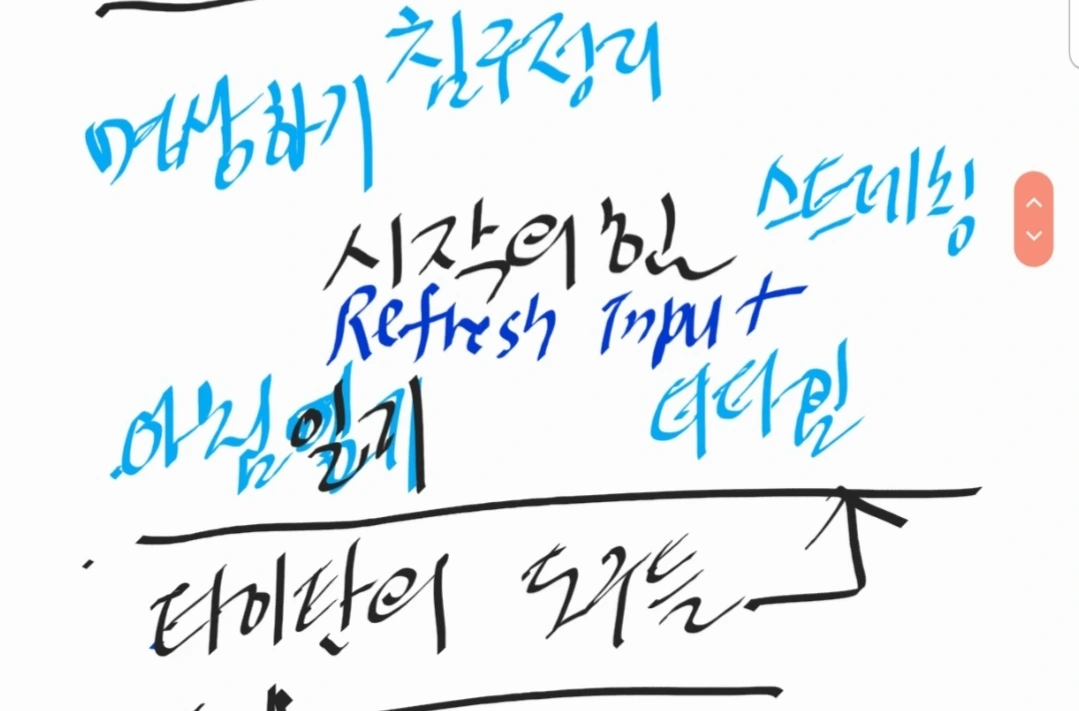 침구정리
명상하기
스트레칭
시작의 힘
Refresh Input
아침일기
티타임
타이탄의 도구들